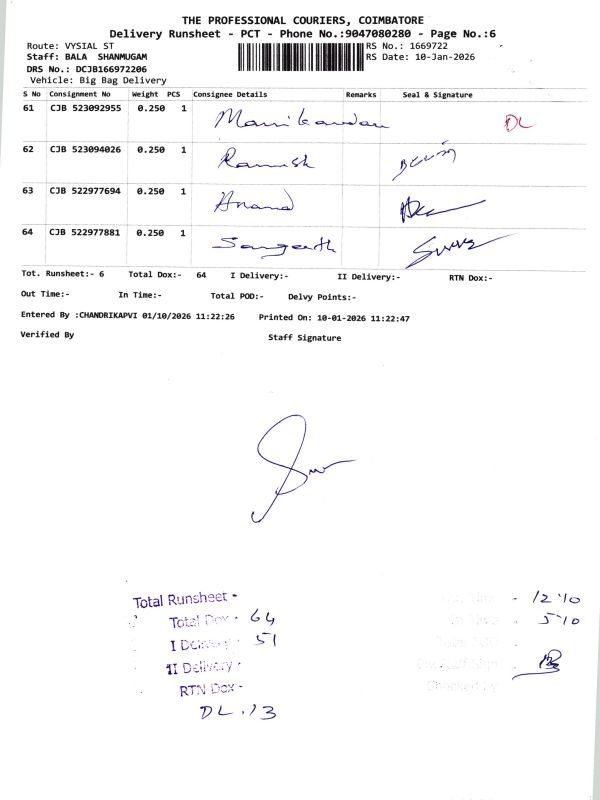 THE PROFESSIONAL COURIERS, COIMBATORE
Delivery Runsheet - PCT - Phone No.:9047080280 - Page No.:6
Route: VYSIAL ST RS No.: 1669722
Staff: BALA SHANMUGAM RS Date: 10-Jan-2026
DRS No.: DCJB166972206
Vehicle: Big Bag Delivery
S No Consignment No Weight PCS Consignee Details Remarks Seal & Signature
61 CJB 523092955 0.250 1 Manikandan DL
62 CJB 523094026 0.250 1 Ramish
63 CJB 522977694 0.250 1 Anand
64 CJB 522977881 0.250 1 Sangeeth
Tot. Runsheet:- 6 Total Dox:- 64 I Delivery:- II Delivery:- RTN Dox:-
Out Time:- In Time:- Total POD:- Delvy Points:-
Entered By :CHANDRIKAPVI 01/10/2026 11:22:26 Printed On: 10-01-2026 11:22:47
Verified By Staff Signature
Total Runsheet - - 12'10
Total Dox - 64 - 5'10
I Delivery - 51
II Delivery -
RTN Dox -
DL . 13